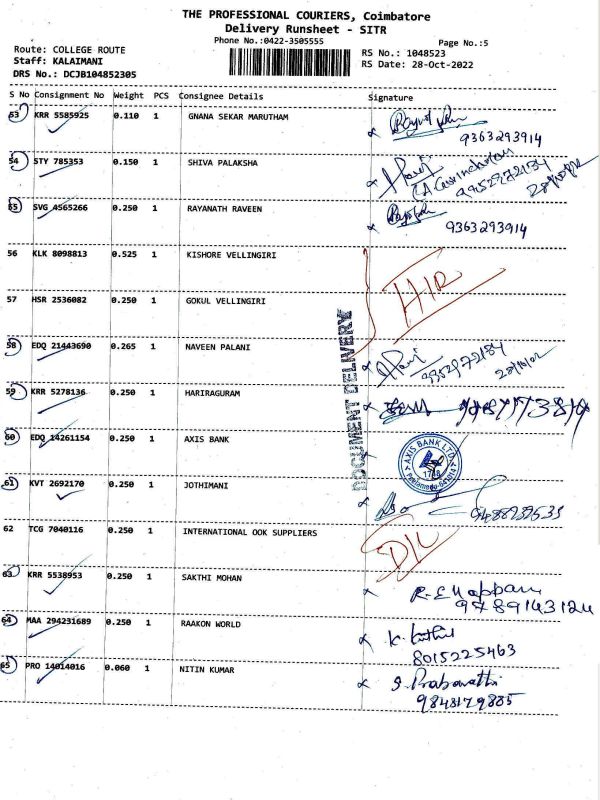 THE PROFESSIONAL COURIERS, Coimbatore
Delivery Runsheet - SITR
Phone No.:0422-3505555
Page No.:5
Route: COLLEGE ROUTE
Staff: KALAIMANI
DRS No.: DCJB104852305
RS No.: 1048523
RS Date: 28-Oct-2022
S No Consignment No Weight PCS Consignee Details Signature
53 KRR 5585925 0.110 1 GNANA SEKAR MARUTHAM
9363293914
54 STY 785353 0.150 1 SHIVA PALAKSHA
55 SVG 4565266 0.250 1 RAYANATH RAVEEN
9363293914
56 KLK 8098813 0.525 1 KISHORE VELLINGIRI
57 HSR 2536082 0.250 1 GOKUL VELLINGIRI
DOCUMENT DELIVERY
58 EDQ 21443690 0.265 1 NAVEEN PALANI
59 KRR 5278136 0.250 1 HARIRAGURAM
60 EDQ 14261154 0.250 1 AXIS BANK
AXIS BANK LTD.
61 KVT 2692170 0.250 1 JOTHIMANI
62 TCG 7040116 0.250 1 INTERNATIONAL OOK SUPPLIERS
D/L
63 KRR 5538953 0.250 1 SAKTHI MOHAN
64 MAA 294231689 0.250 1 RAAKON WORLD
8015225463
65 PRO 14014016 0.060 1 NITIN KUMAR
S. Prabavathi
9843179885